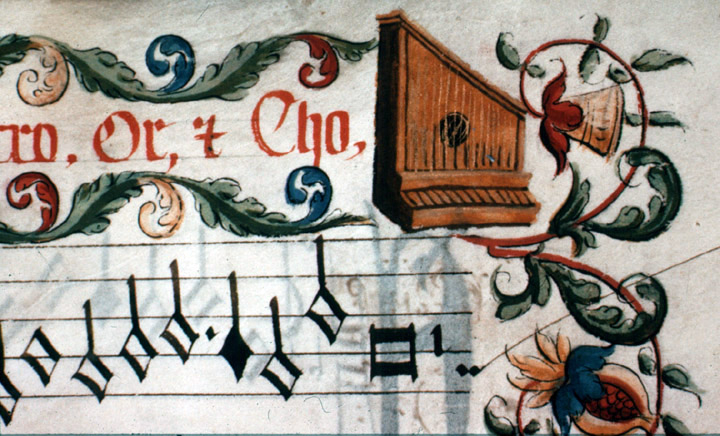 ro, Or, ⁊ Cho,